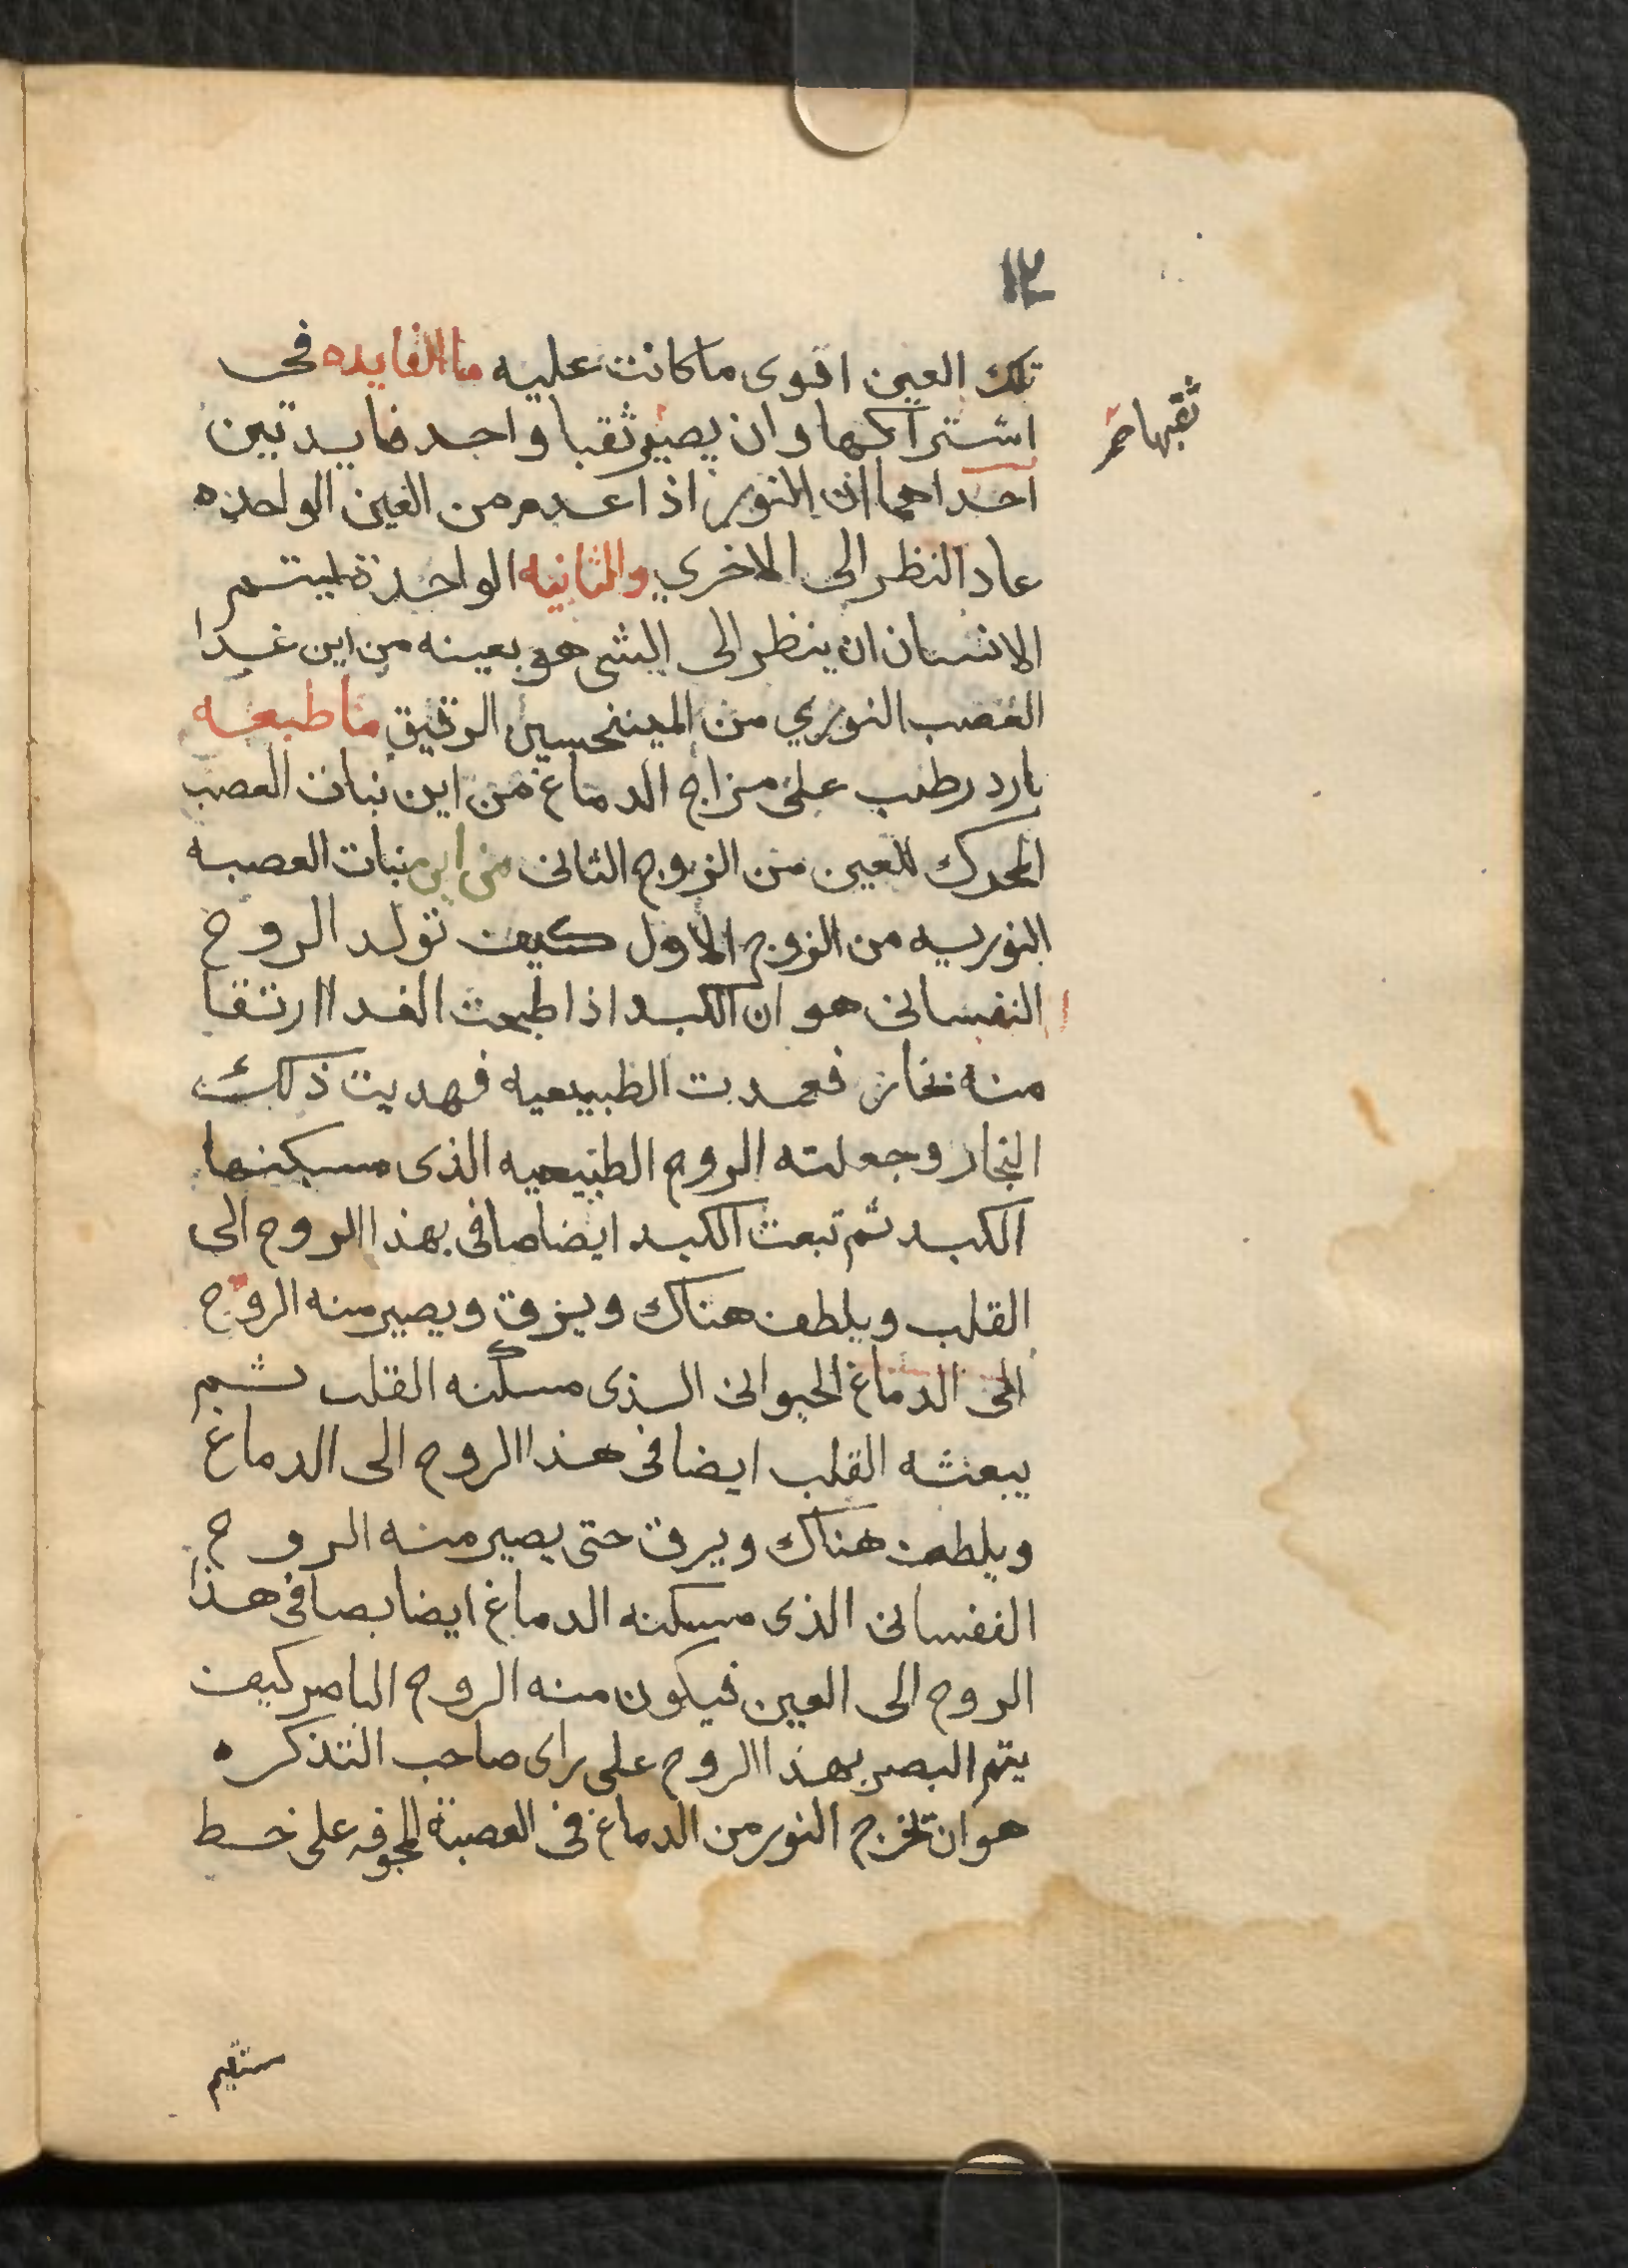 ١٢
تلك العين اقوى ما كانت عليه ما الفايده فى
اشتراكها وان يصير ثقبا واحد فايدتين
احداهما ان النور اذا عدم من العين الواحده
عاد النظر الى الاخري والثانيه الواحدة ليتم
الانسان ان ينظر الى الشى هو بعينه من اين غدا
العصب النوري من الرقيق ما طبعه
بارد رطب على مزاج الدماغ من اين نبات العصب
المحرك للعين من الزوج الثانى من اين نبات العصبه
النوريه من الزوج الاول كيف تولد الروح
النفسانى هو ان الكبد اذا طبخت الغدا ارتقا
منه بخار فعمدت الطبيعيه فهديت ذلك
البخار وجعلته الروح الطبيعيه الذى مسكنها
الكبد ثم تبعث الكبد ايضا صافى بهذا الروح الى
القلب ويلطف هناك ويرق ويصير منه الروح
الى الدماغ الحيوانى الذى مسكنه القلب ثم
يبعثه القلب ايضا فى هذا الروح الى الدماغ
ويلطف هناك ويرق حتى يصير منه الروح
النفسانى الذى مسكنه الدماغ ايضا بصافى هذا
الروح الى العين فيكون منه الروح الباصر كيف
يتم البصر بهذا الروح على راى صاحب التذكره
هو ان تخرج النور من الدماغ فى العصبة المجوفه على خط
ثقبها
ستقيم